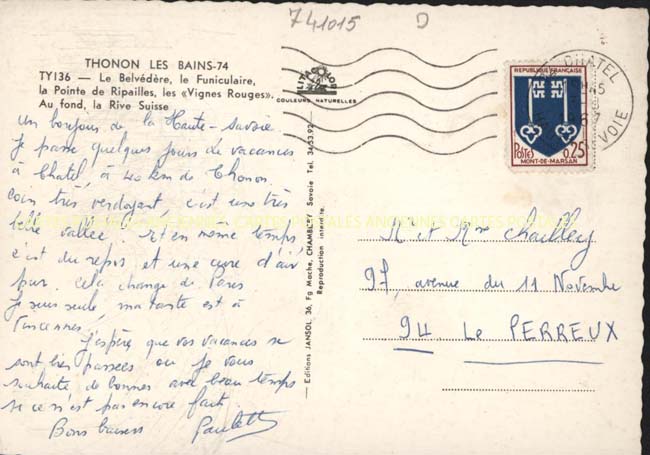 741015 D
THONON LES BAINS-74
TY136 — Le Belvédère, le Funiculaire,
la Pointe de Ripailles, les «Vignes Rouges».
Au fond, la Rive Suisse
COULEURS NATURELLES
CHATEL
SAVOIE
REPUBLIQUE FRANCAISE
POSTES 0,25
MONT-DE-MARSAN
Un bonjour de la Haute-Savoie
Je passe quelques jours de vacances
à Châtel, à 40 km de Thonon
coin très verdoyant c'est une très
belle vallée. Et en même temps
c'est du repos et une cure d'air
pur. cela change de Paris
Je suis seule, ma tante est à
Vincennes.
J'espère que vos vacances se
sont bien passées ou je vous
souhaite de bonnes avec beau temps
si ce n'est pas encore fait.
Bons baisers Paulette
Editions JANSOL, 36, Fg Mache, CHAMBERY Savoie Tel. 34.53.92
Reproduction interdite.
M et Mme Chailley
97, avenue du 11 Novembre
94 Le PERREUX
CARTES POSTALES ANCIENNES CARTES POSTALES